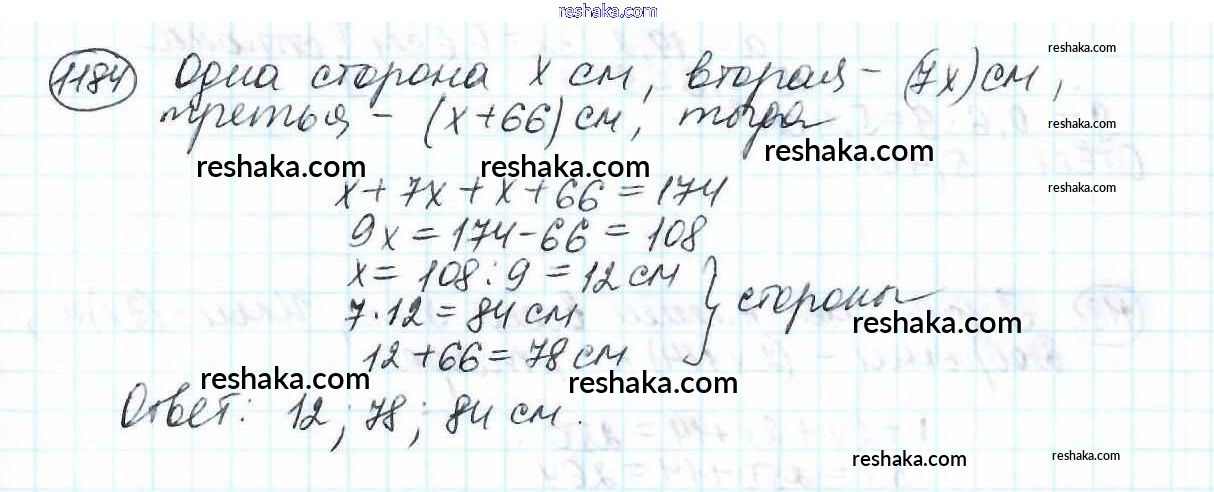 reshaka.com
1184 Одна сторона x см, вторая – (7x) см,
reshaka.com
третья – (x+66) см, тогда
reshaka.com
reshaka.com reshaka.com reshaka.com
x + 7x + x + 66 = 174
reshaka.com
9x = 174 - 66 = 108
x = 108 : 9 = 12 см
7 · 12 = 84 см } стороны
reshaka.com
12 + 66 = 78 см
reshaka.com reshaka.com
Ответ: 12; 78; 84 см.
reshaka.com reshaka.com